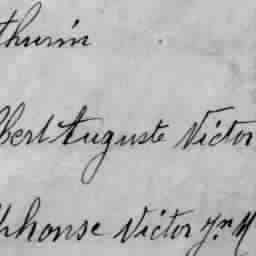 thurin
bert Auguste Victor
phonse Victor Jn M